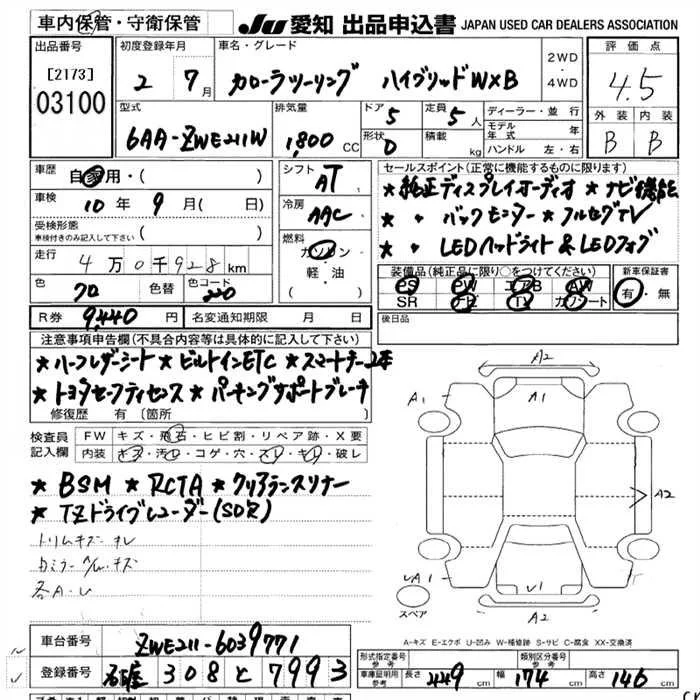 車内保管・守衛保管 JU 愛知 出品申込書 JAPAN USED CAR DEALERS ASSOCIATION
出品番号 初度登録年月 車名・グレード 2WD ・ 4WD 評価点
[2173]
03100 2 7月 カローラツーリング ハイブリッドW×B 4.5
型式 排気量 ドア 5 定員 5人 ディーラー・並行 外装 内装
6AA-ZWE211W 1,800 CC 形状 D 積載 kg モデル年式 年 B B
ハンドル 左・右
車歴 自家用・( ) シフト AT セールスポイント(正常に機能するものに限ります)
車検 10年 9月( 日) 冷房 AAC ★純正ディスプレイオーディオ ★ナビ機能
受検形態 ★ 〃 バックモニター ★フルセグTV
車検付きのみ記入して下さい ( ) 燃料 ガソリン ★ 〃 LEDヘッドライト&LEDフォグ
走行 4万0千928km 軽・油 装備品(純正品に限り○をつけてください) 新車保証書
色 クロ 色替 色コード 220 PS PW エアB AW 有・無
SR ナビ TV カワシート
R券 9,440円 名変通知期限 月 日 後日品
注意事項申告欄(不具合内容等は具体的に記入して下さい)
★ハーフレザーシート ★ビルトインETC ★スマートキー2本
★トヨタセーフティセンス ★パーキングサポートブレーキ
修復歴 有 〔箇所 〕
検査員記入欄 FW キズ・飛石・ヒビ割・リペア跡・X要
内装 キズ・汚レ・コゲ・穴・スレ・キレ・破レ
★BSM ★RCTA ★クリアランスソナー
★TZドライブレコーダー(SD欠)
トリムキズ・スレ
各A・U
A2
A1 A1
A2
UA1 U1
スペア A2
A-キズ E-エクボ U-凹み W-補修跡 S-サビ C-腐食 XX-交換済
車台番号 ZWE211-6039771 形式指定番号 参考 類別区分番号 参考
登録番号 名古屋 308 と 7993 車庫証明用 参考 長さ 449cm 幅 174cm 高さ 146cm